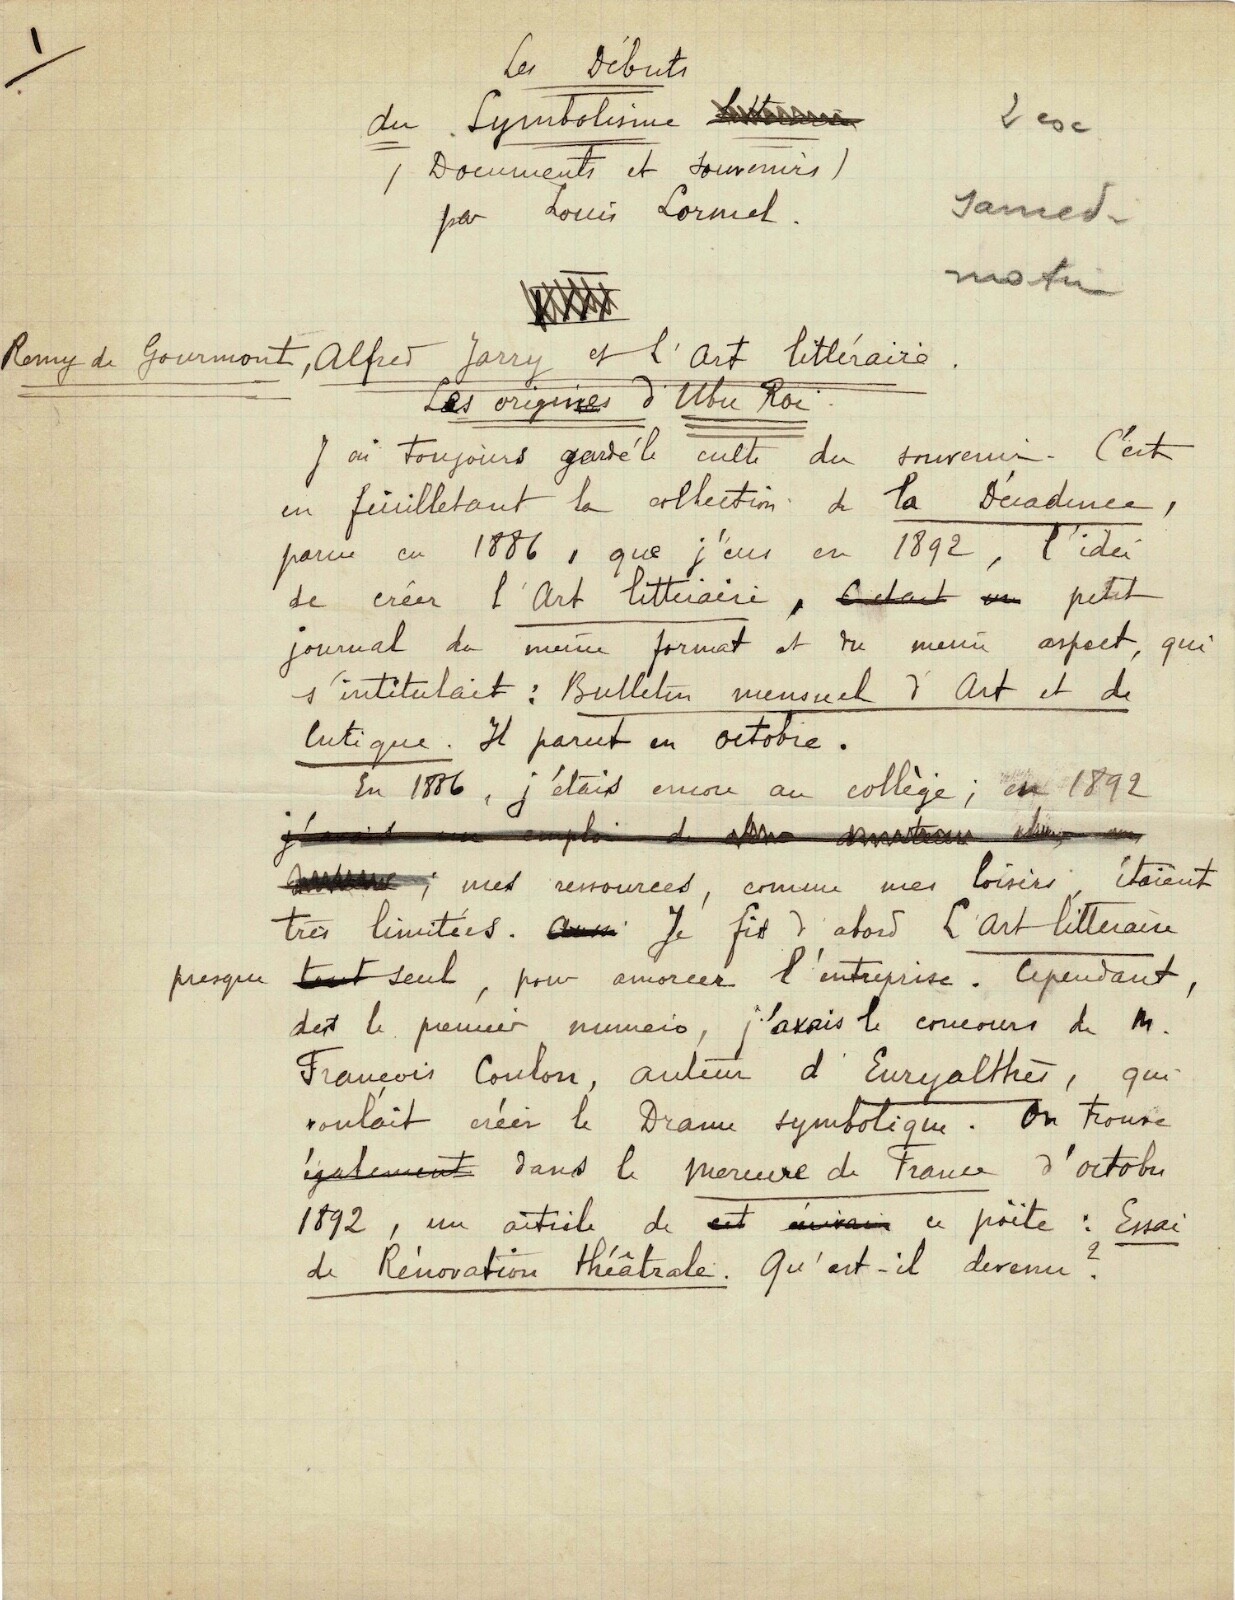 1
Les Débuts
du Symbolisme
2 ex
( Documents et souvenirs )
samedi
par Louis Lormel.
matin
Remy de Gourmont, Alfred Jarry et l'Art littéraire.
Les origines d'Ubu Roi.
J'ai toujours gardé le culte du souvenir. C'est
en feuilletant la collection de la Décadence,
parue en 1886, que j'eus en 1892, l'idée
de créer l'Art littéraire, c'etait un petit
journal du même format et du même aspect, qui
s'intitulait : Bulletin mensuel d'Art et de
Critique. Il parut en octobre.
En 1886, j'étais encore au collège ; en 1892
j'avais un emploi de
; mes ressources, comme mes loisirs, étaient
très limitées. Aussi Je fis d'abord L'Art littéraire
presque tout seul, pour amorcer l'entreprise. Cependant,
dès le premier numéro, j'avais le concours de M.
François Coulon, auteur d'Euryalthès, qui
voulait créer le Drame symbolique. On trouve
également dans le Mercure de France d'octobre
1892, un article de cet écrivain ce poëte : Essai
de Rénovation théâtrale. Qu'est-il devenu ?